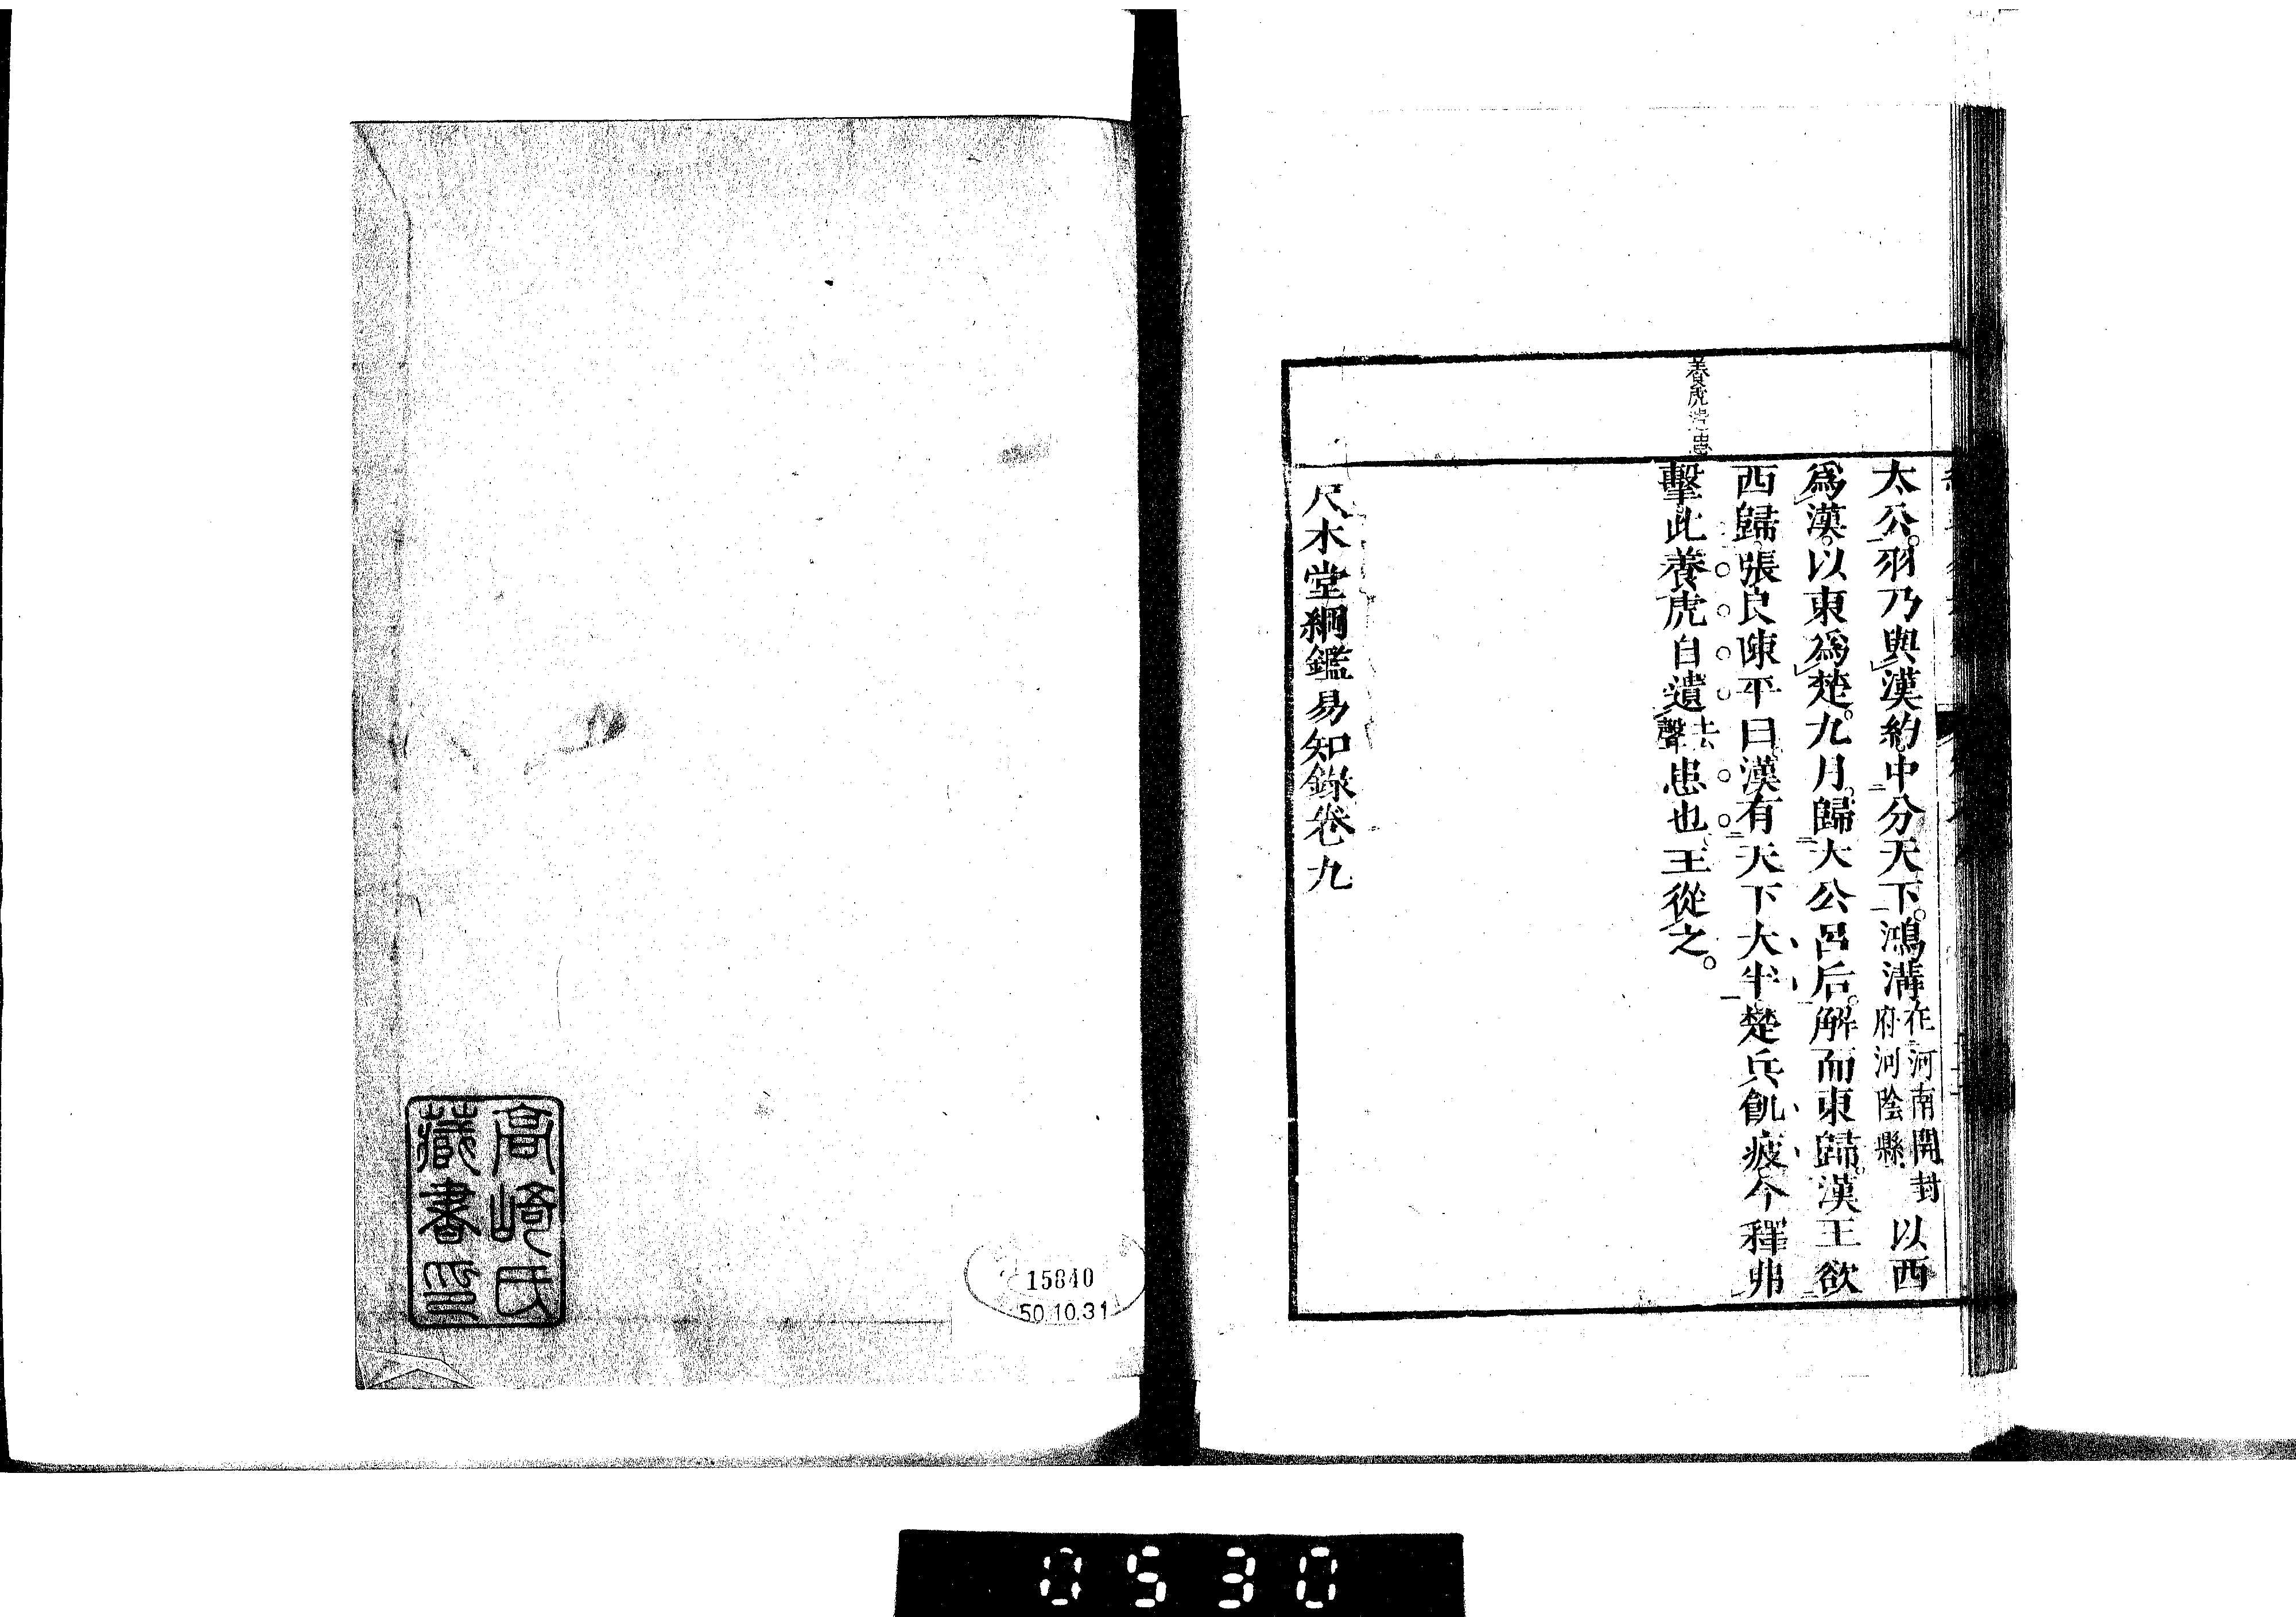 養虎遺患
太公。羽乃與漢約中分天下。鴻溝在河南開封府河陰縣以西
爲漢。以東爲楚。九月。歸太公呂后。解而東歸。漢王欲
西歸。張良陳平曰。漢有天下大半。楚兵飢疲。今釋弗
擊。此養虎自遺去聲患也。王從之。
尺木堂綱鑑易知錄卷九
高崎氏
藏書印
15840
50.10.31
0530